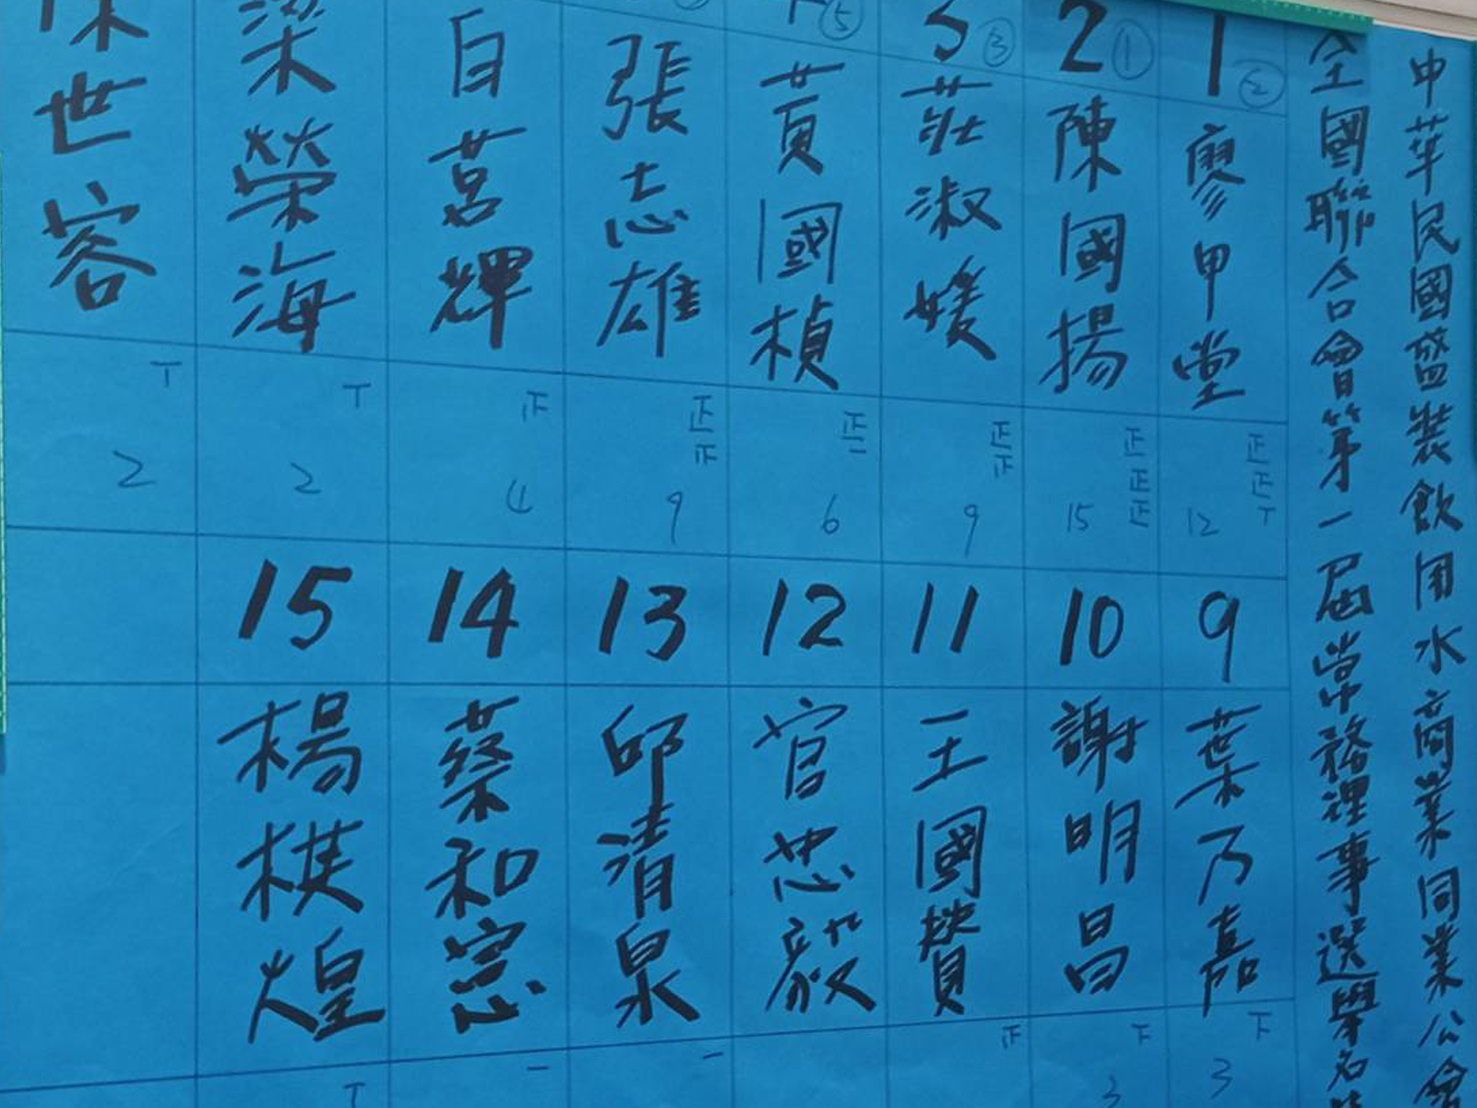 中華民國盛裝飲用水商業同業公會
全國聯合會第一屆常務理事選舉名
1 ②
廖甲堂
正正丅
12
2 ①
陳國揚
正正正
15
③
莊淑媛
正正
9
⑤
黃國楨
正一
6
張志雄
正正
9
白茗輝
正
4
梁榮海
丅
2
陳世容
丅
2
9
葉乃嘉
下
3
10
謝明昌
下
3
11
王國贊
正
12
官忠毅
13
邱清泉
一
14
蔡和宗
一
15
楊棋煌
丅